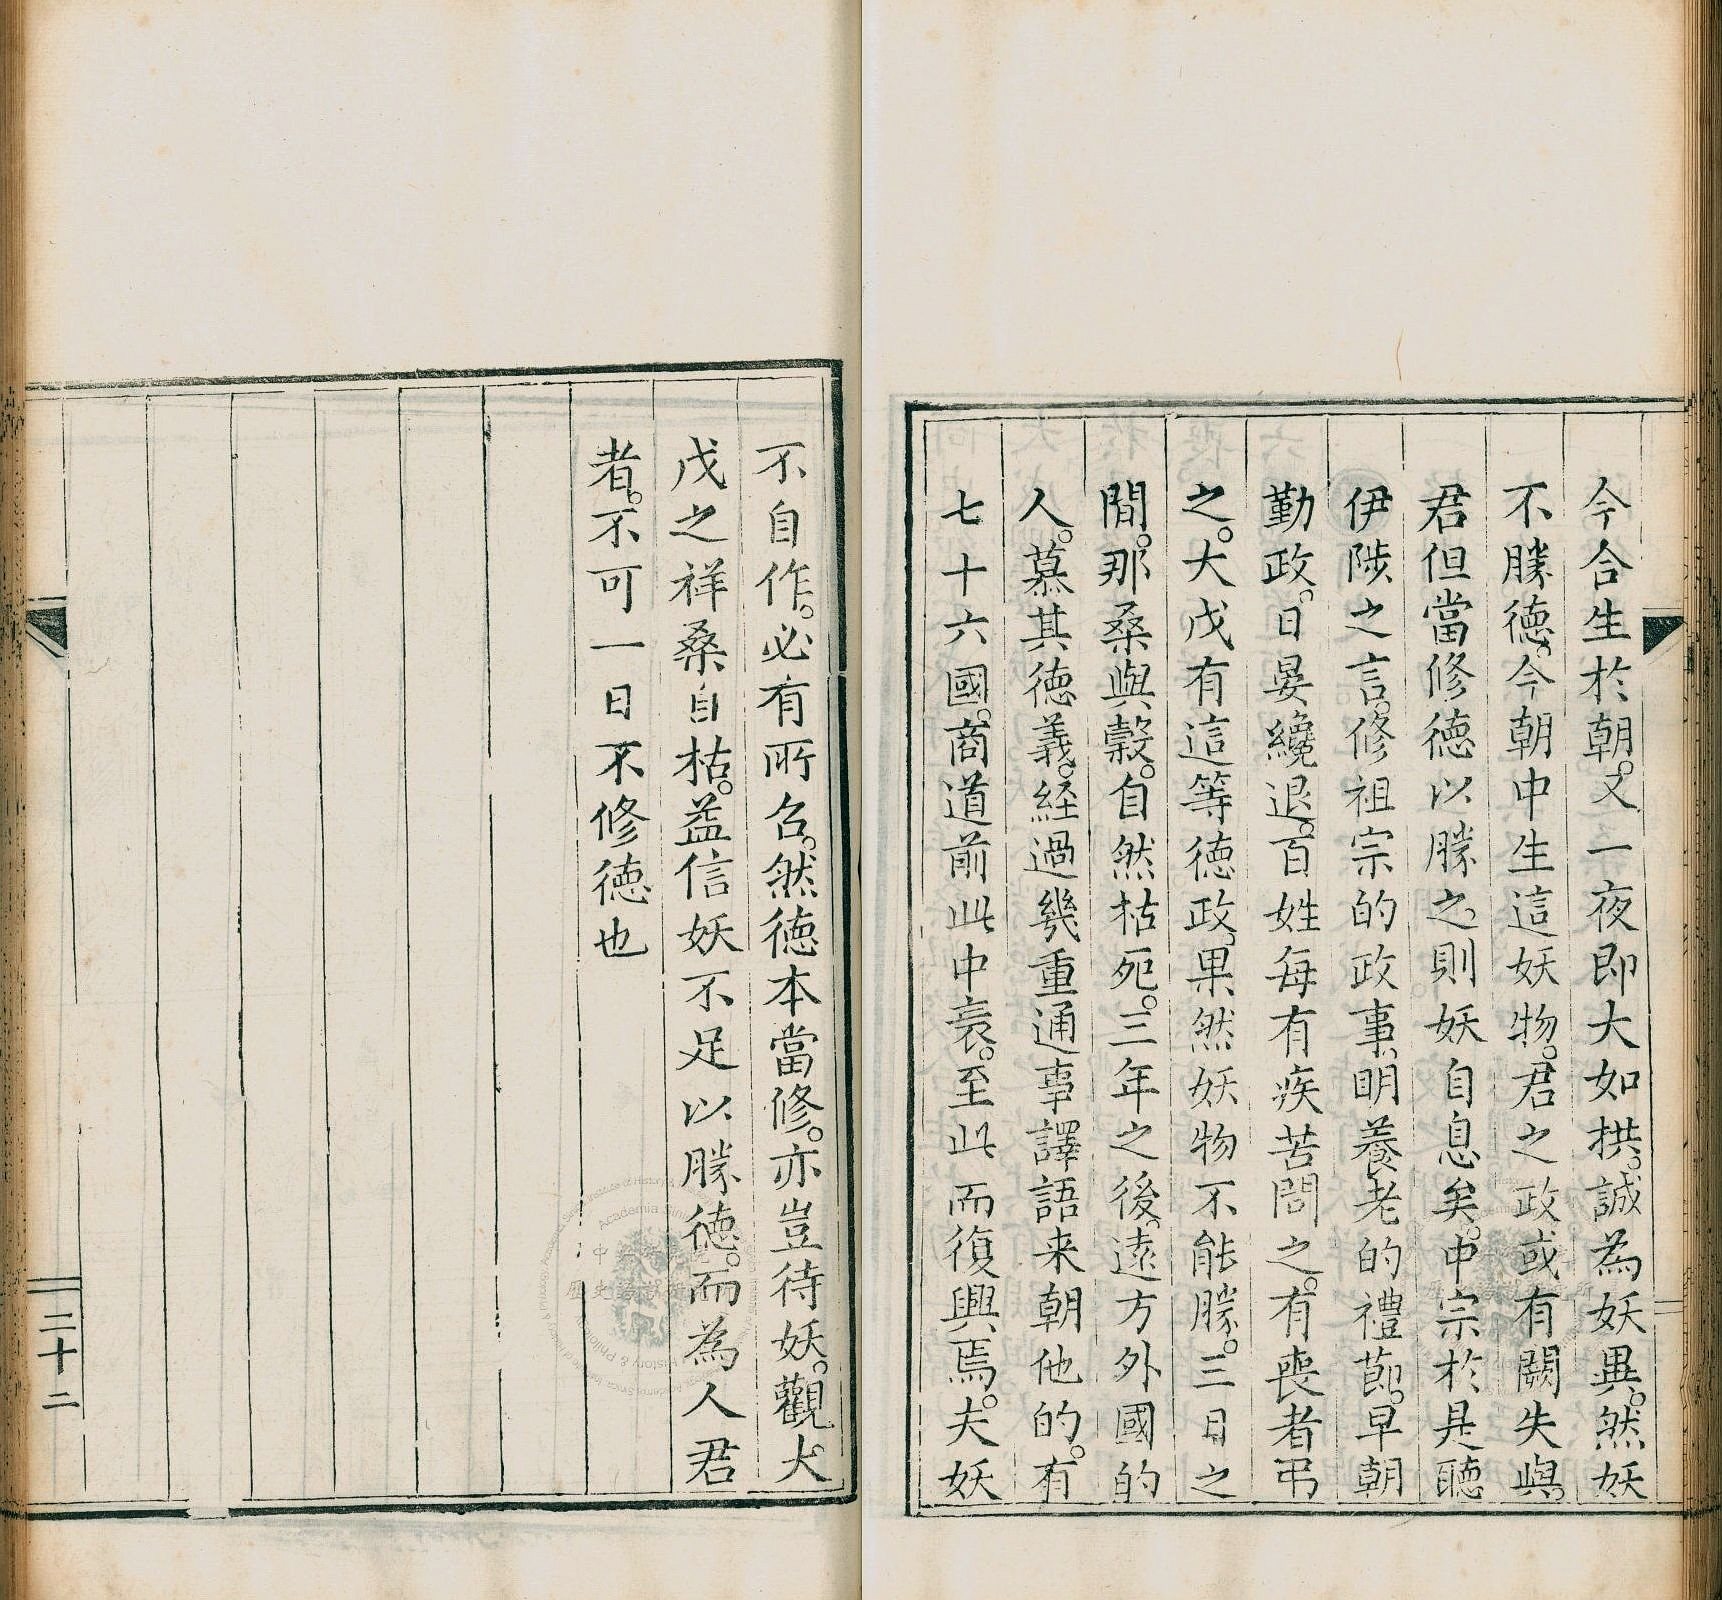 今合生於朝。又一夜即大如拱。誠為妖異。然妖
不勝德。今朝中生這妖物。君之政或有闕失與。
君但當修德以勝之。則妖自息矣。中宗於是聽
伊陟之言。修祖宗的政事。明養老的禮節。早朝
勤政。日晏纔退。百姓每有疾苦問之。有喪者弔
之。大戊有這等德政。果然妖物不能勝。三日之
間。那桑與榖。自然枯死。三年之後。遠方外國的
人。慕其德義。経過幾重通事譯語来朝他的。有
七十六國。商道前此中衰。至此而復興焉。夫妖
不自作。必有所召。然德本當修。亦豈待妖。觀大
戊之祥桑自枯。益信妖不足以勝德。而為人君
者。不可一日不修德也
二十二